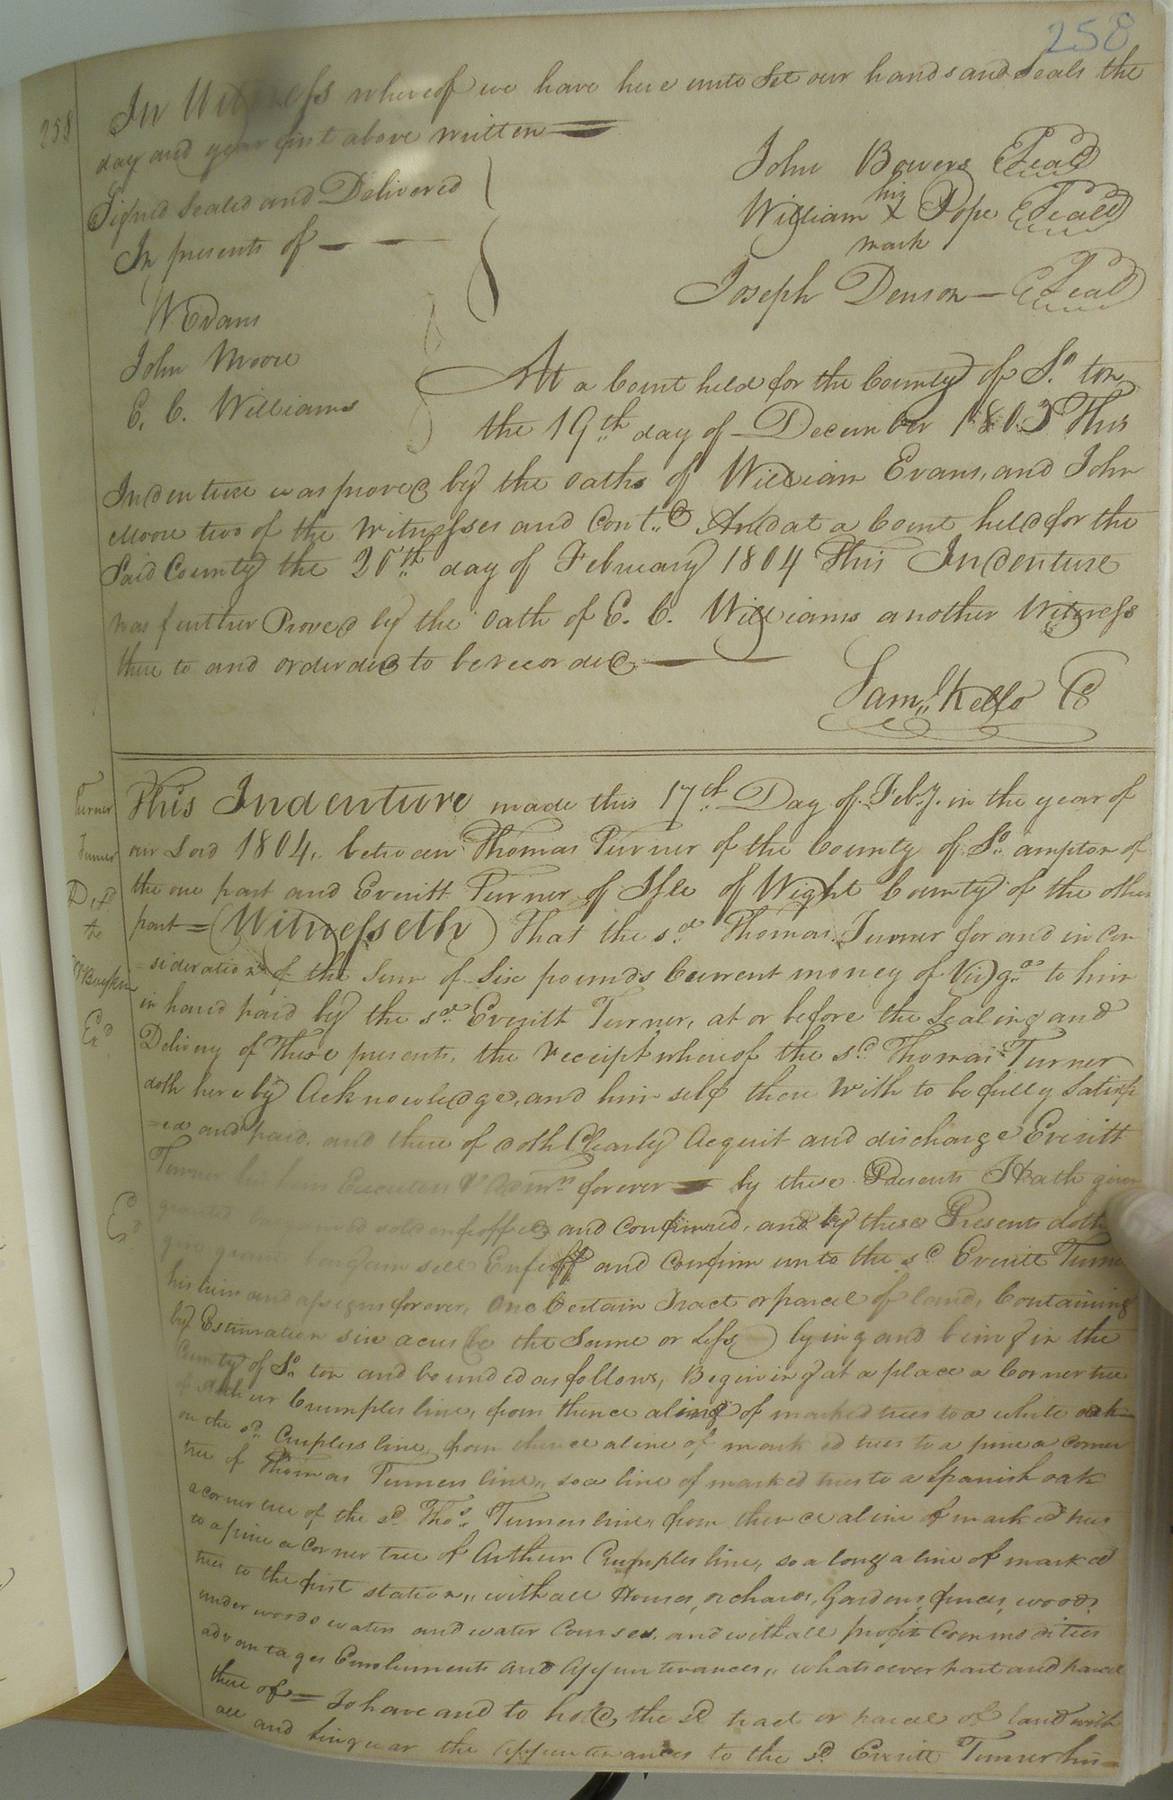 258
258
In Witness whereof we have here unto Set our hands and Seals the
day and year first above written
John Bowers Seal
Signed Sealed and Delivered
his
William X Pope Seal
mark
In presents of
Joseph Denson Seal
W Evans
John Moore
E. C. Williams
At a Court held for the County of So. ton
the 19th day of December 1803 This
Indenture was proved by the oaths of William Evans, and John
Moore two of the Witnesses and Cont.d And at a Court held for the
Said County the 20th day of February 1804 This Indenture
was further Proved by the oath of E. C. Williams another Witness
there to and orderded to be recorded
Sam.l Kello C
Turner
Turner
Ded
the
Exd
Ed
This Indenture made this 17th Day of Feb.y in the year of
our Lord 1804, between Thomas Turner of the County of So. ampton of
the one part and Everitt Turner of Isle of Wight County of the other
part = (Witnesseth) That the sd. Thomas Turner for and in con
=sideration of the Sum of Six pounds Current money of Virg.a to him
in hand paid by the sd. Everitt Turner, at or before the Sealing and
Delivery of these presents, the receipt whereof the sd. Thomas Turner
doth hereby Acknowledge, and him self there with to be fully Satisf
=ed and paid, and there of doth Clearly Acquit and discharge Everitt
Turner his heirs Executors & Admrs forever by these Presents Hath given
granted sold enfoffed and confirmed, and by these Presents doth
give grant bargain sell Enfeoff and Confirm unto the sd Everitt Turner
his heirs and assigns forever, One Certain Tract or parcel of land, Containing
by Estimation six acres (be the Same or Less) lying and being in the
County of So. ton and bounded as follows, Begining at a place a Corner tree
of Arthur Crumples line, from thence a line of marked trees to a white oak
on the sd. Crupless line, from thence a line of marked trees to a pine a corner
tree of Thomas Turners line, so a line of marked trees to a Spanish oak
a corner tree of the sd Thos. Turners line, from thence a line of marked trees
to a pine a corner tree of Arthur Crumples line, so along a line of marked
trees to the first station, with all Houses, orchards, Gardens, fences, woods,
under woods waters and water Courses, and with all profits Commodities
advantages Emoluments and Appurtenances, whatsoever part and parcel
there of = To have and to hold, the sd tract or parcel of land with
all and Singuear the appurtenances to the sd Everitt Turner his